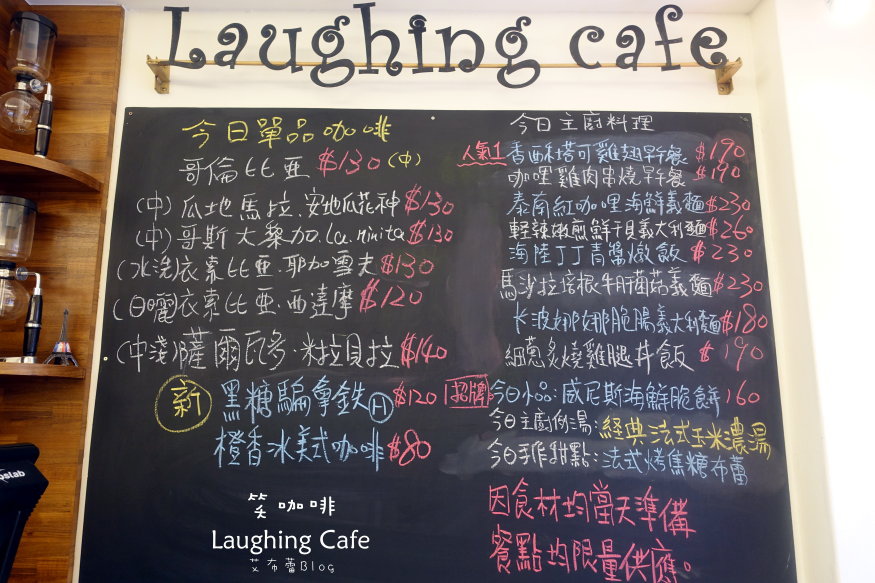 Laughing cafe
今日單品咖啡
哥倫比亞 $130 (中)
(中) 瓜地馬拉.安地瓜花神 $130
(中) 哥斯大黎加.La minita $130
(水洗)衣索比亞.耶加雪夫 $130
(日曬)衣索比亞.西達摩 $120
(中淺)薩爾瓦多.米拉貝拉 $140
新 黑糖騙拿鉄 H $120
橙香冰美式咖啡 $80
笑咖啡
Laughing Cafe
艾布蕾Blog
今日主廚料理
人氣1 香西科塔可雞翅早午餐 $190
咖哩雞肉串燒早午餐 $190
泰南紅咖哩海鮮義麵 $230
輕辣嫩煎鮮干貝義大利麵 $260
海陸丁丁青醬燉飯 $230
馬沙拉培根牛肝菌菇義麵 $230
卡波娜娜脆腸義大利麵 $180
細蔥炙燒雞腿丼飯 $190
招牌 今日小品:威尼斯海鮮脆餅 160
今日主廚例湯:經典法式玉米濃湯
今日手作甜點:法式烤焦糖布蕾
因食材均當天準備
餐點均限量供應。